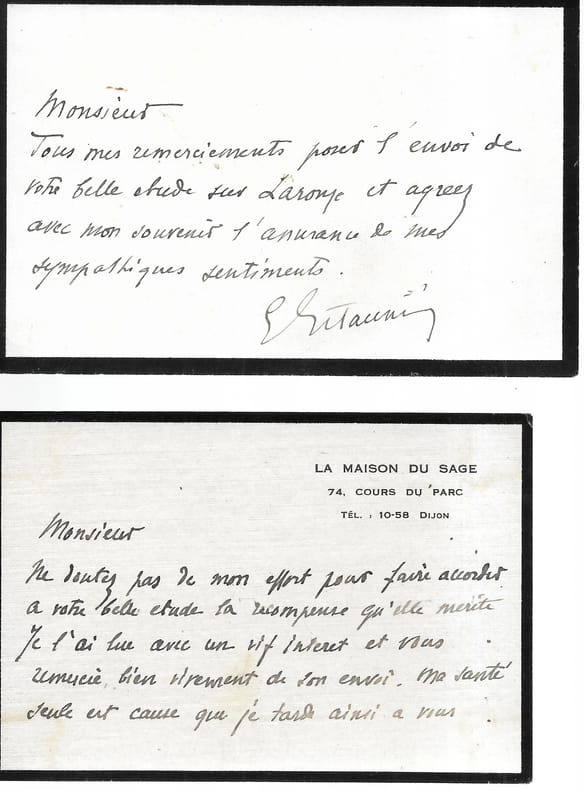 Monsieur
Tous mes remerciements pour l'envoi de
votre belle etude sur et agreez
avec mon souvenir l'assurance de mes
sympathiques sentiments.
LA MAISON DU SAGE
74, COURS DU PARC
TÉL. : 10-58 DIJON
Monsieur
Ne doutez pas de mon effort pour faire accorder
a votre belle etude la recompense qu'elle merite
Je l'ai lue avec un vif interet et vous
remercie bien vivement de son envoi. Ma santé
seule est cause que je tarde ainsi a vous